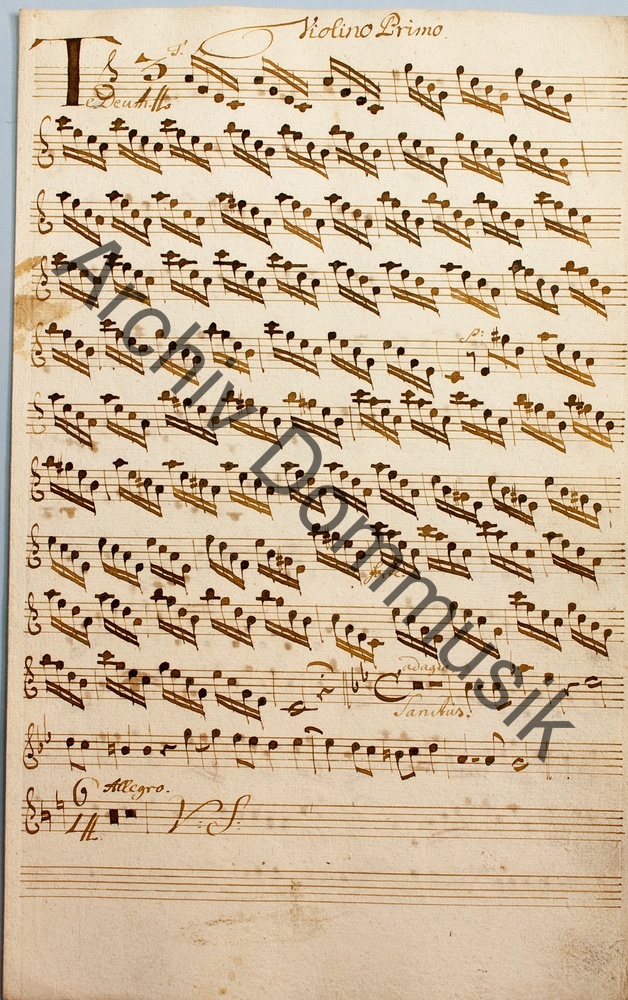 Violino Primo.
Te Deum
adagio
Sanctus.
6 Allegro.
V. S.
Archiv Dommusik